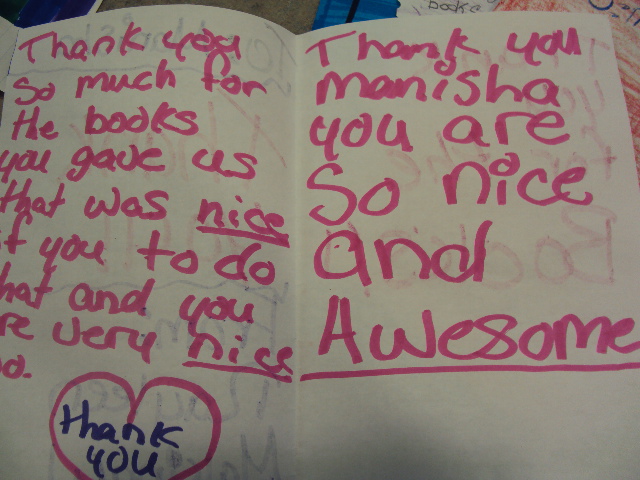 Thank you
So much for
the books
you gave us
that was nice
if you to do
hat and you
re very nice
oo.
thank
you
Thank you
manisha
you are
So nice
and
Awesome
books